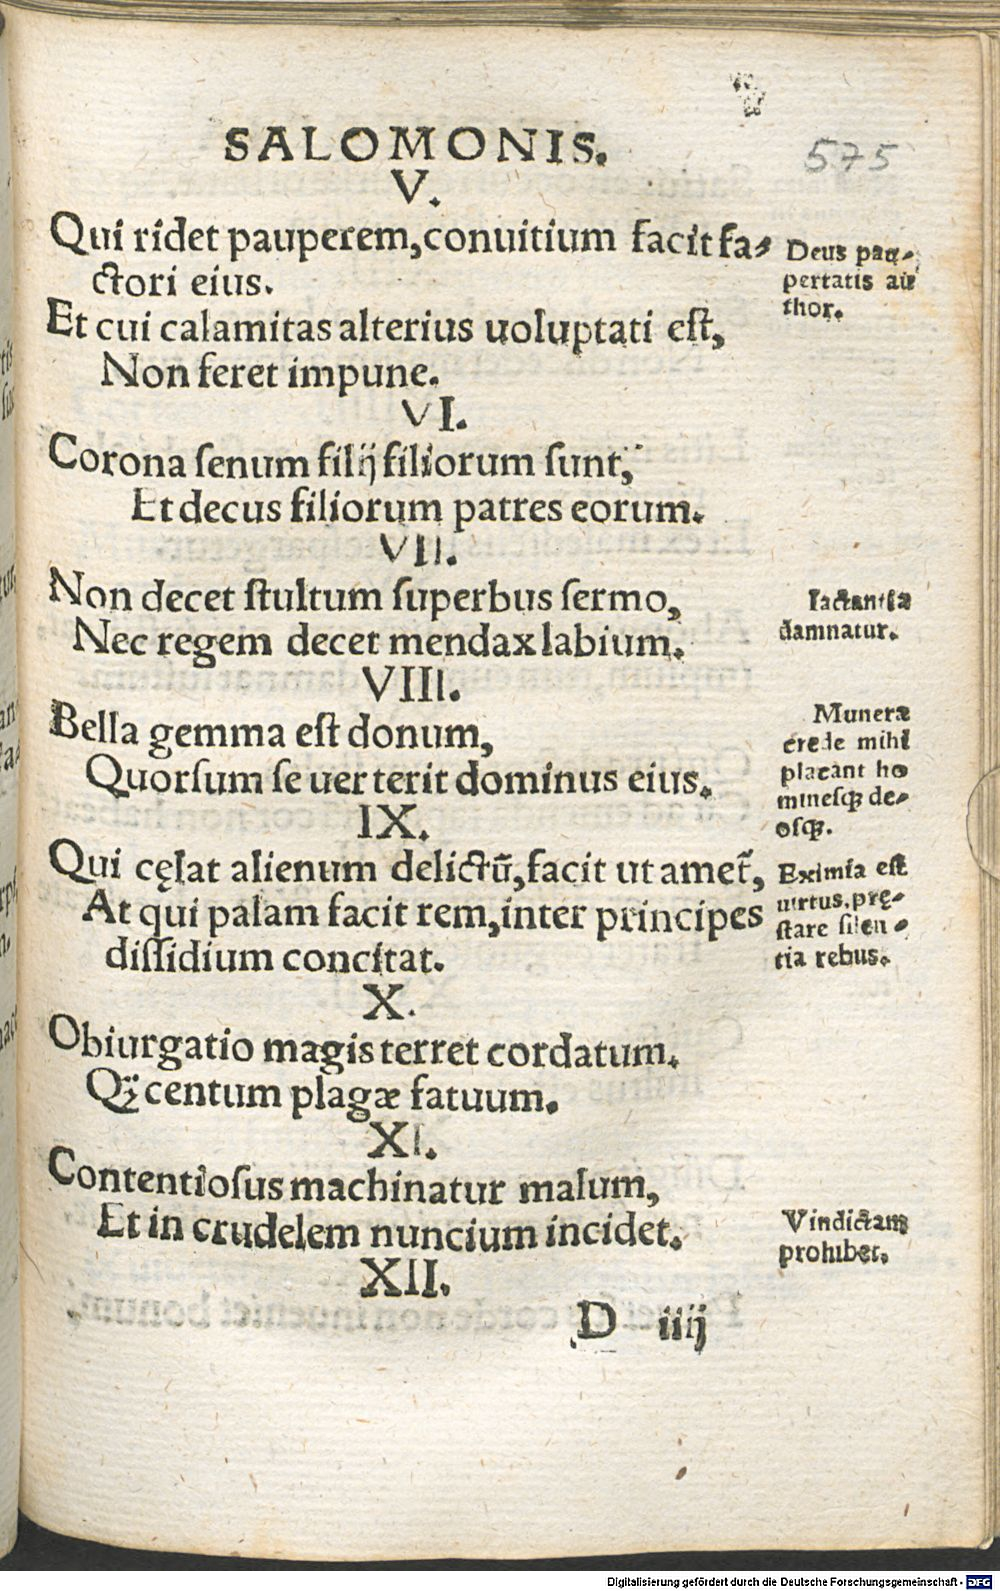 SALOMONIS.
575
V.
Qui ridet pauperem,conuitium facit fa⸗
ctori eius.
Deus pau⸗
pertatis au
thor.
Et cui calamitas alterius uoluptati est,
Non feret impune.
VI.
Corona senum filij filiorum sunt,
Et decus filiorum patres eorum.
VII.
Non decet stultum superbus sermo,
Nec regem decet mendax labium.
Iactantia
damnatur.
VIII.
Bella gemma est donum,
Quorsum se uer terit dominus eius.
Munera
crede mihi
placant ho
minesqꝫ de⸗
osqꝫ.
IX.
Qui cęlat alienum delictū,facit ut amet̃,
At qui palam facit rem,inter principes
dissidium concitat.
Eximia est
uirtus,prę⸗
stare silen⸗
tia rebus.
X.
Obiurgatio magis terret cordatum.
Qꝫ̈ centum plagæ fatuum.
XI.
Contentiosus machinatur malum,
Et in crudelem nuncium incidet.
Vindictam
prohibet.
XII.
D iiij
Digitalisierung gefördert durch die Deutsche Forschungsgemeinschaft - DFG